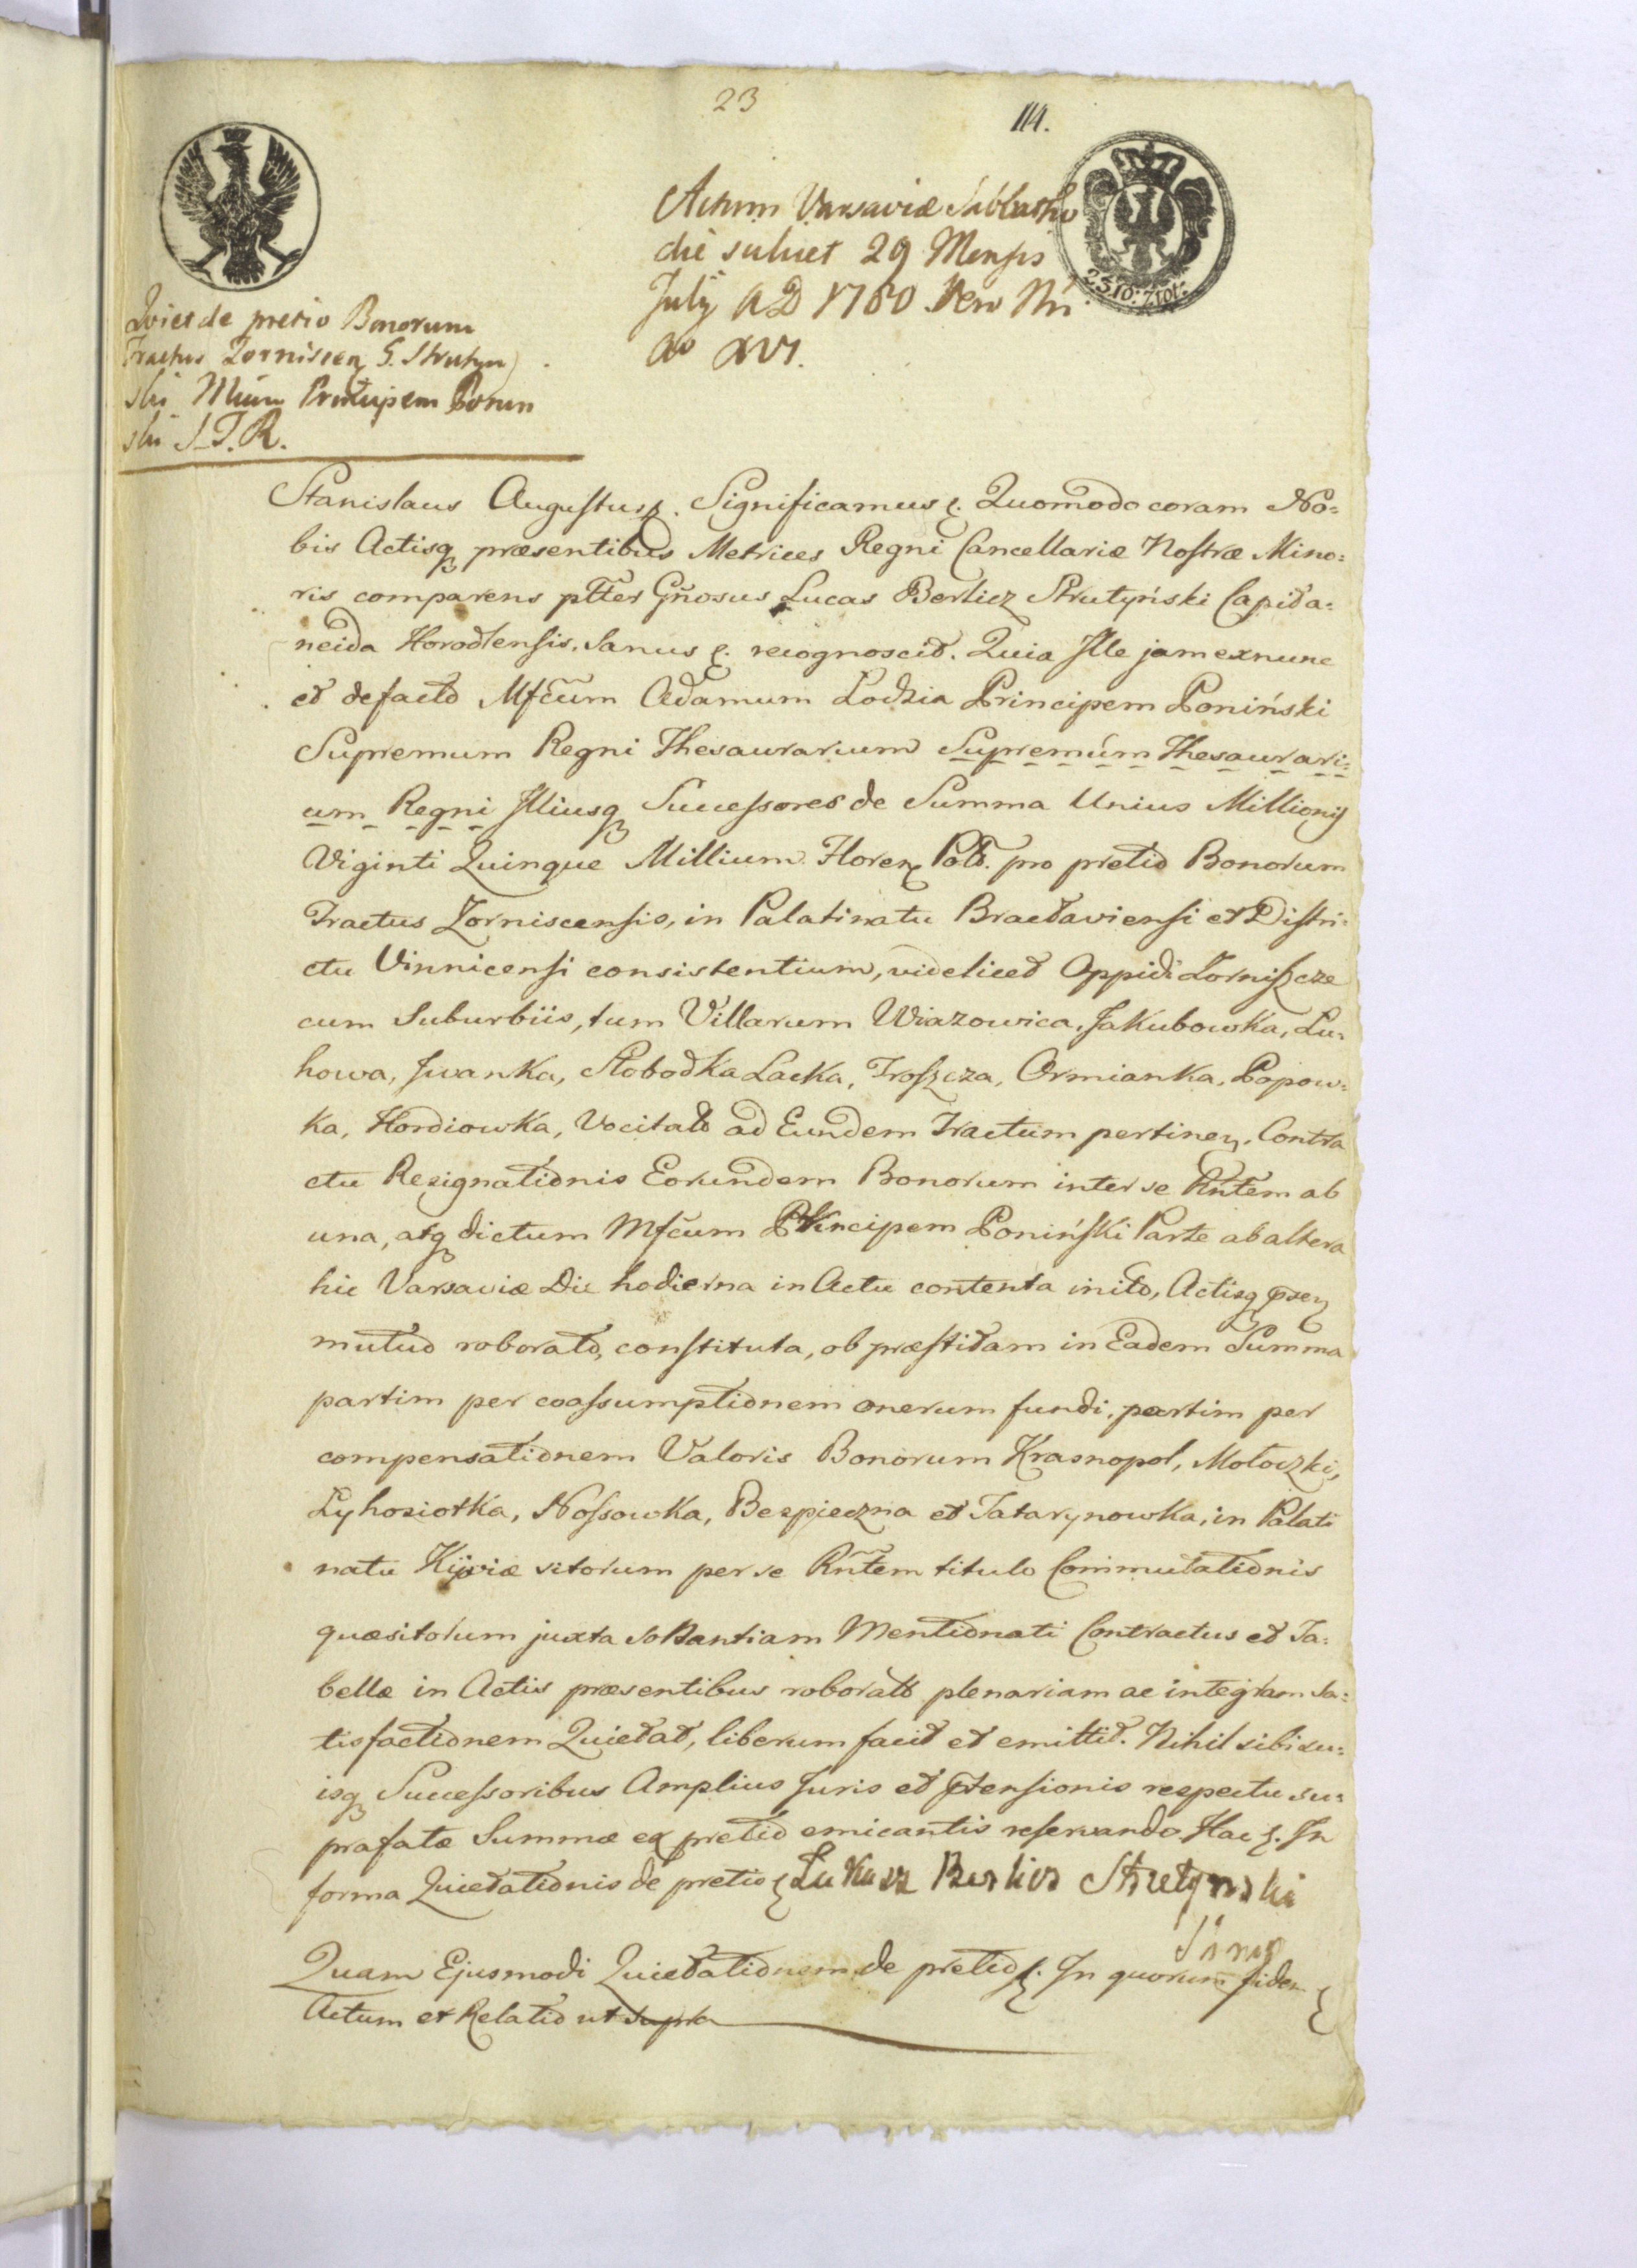 23
114.
Actum Varsaviæ Sabbatho
die scilicet 29 Mensis
July A D 1780 Rni Nri
ao XVI.
25 10: Złot:
Quiet de pretio Bonorum
Tractus Zorniscen G. Strutyn
ski Mfcum Principem Ponin
ski S. T. R.
Stanislaus Augustus. Significamus. Quomodo coram No:
bis Actisq præsentibus Metrices Regni Cancellariæ Nostræ Mino:
ris comparens ptter Gnosus Lucas Berlicz Strutyński Capita:
neida Horodlensis. Sanus recognoscit. Quia Ille jam exnunc
et defacto Mfcum Adamum Lodzia Principem Poniński
Supremum Regni Thesaurarium Supremum Thesaurari:
um Regni Illiusq Successores de Summa Unius Millionis
Viginti Quinque Millium Floren Pol. pro pretio Bonorum
Tractus Zorniscensis, in Palatinatu Braclaviensi et Distri:
ctu Vinnicensi consistentium, videlicet Oppidi Zorniszcze
cum Suburbiis, tum Villarum Wiazowica, Jakubowka, Lu:
howa, Iwanka, Slobodka Lacka, Troszcza, Ormianka, Popow:
ka, Hordiowka, Vocitato ad Eundem Tractum pertinen. Contra
ctu Resignationis Eorundem Bonorum inter se Rntem ab
una, atq dictum Mfcum Principem Poniński Parte ab altera
hic Varsaviæ Die hodierna in Actu contenta inito, Actisq præn
mutuo roborato, constituta, ob præstitam in Eadem Summa
partim per coassumptionem onerum fundi, partim per
compensationem Valoris Bonorum Krasnopol, Motoczki,
Lyhosiotka, Nossowka, Bezpieczna et Tatarynowka, in Palati
natu Kijoviæ sitorum per se Rntem titulo Commutationis
quæsitorum juxta substantiam Mentionati Contractus et Ta:
bellæ in Actis præsentibus roborato plenariam ac integram Sa:
tisfactionem Quietat, liberum facit et emittit. Nihil sibi su:
isq Successoribus Amplius Juris et prætensionis respectu su:
prafatæ Summæ ex pretio emicantis reservando. Hac. In
forma Quietationis de pretio Łukasz Berlicz Strutynski
Quam Ejusmodi Quietationem de pretio. In quorum fidem
Actum et Relatio ut supra